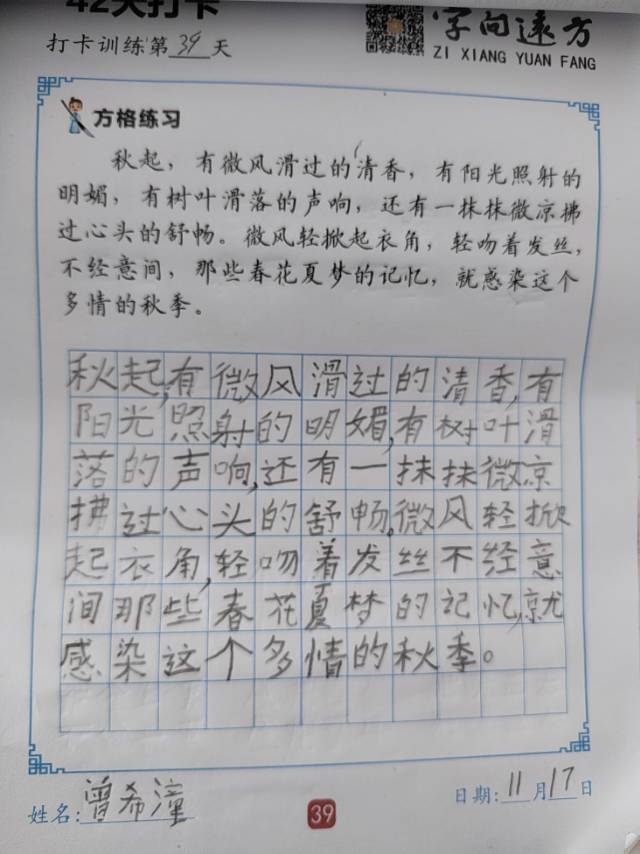 42天打卡
打卡训练第39天
字向远方
ZI XIANG YUAN FANG
方格练习
秋起，有微风滑过的清香，有阳光照射的
明媚，有树叶滑落的声响，还有一抹抹微凉拂
过心头的舒畅。微风轻掀起衣角，轻吻着发丝，
不经意间，那些春花夏梦的记忆，就感染这个
多情的秋季。
秋起,有微风滑过的清香,有
阳光照射的明媚,有树叶滑
落的声响,还有一抹抹微凉
拂过心头的舒畅,微风轻掀
起衣角,轻吻着发丝不经意
间那些春花夏梦的记忆,就
感染这个多情的秋季。
姓名:曾希潼
39
日期:11月17日